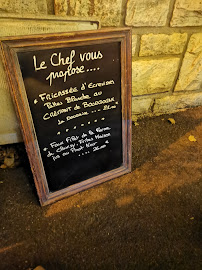 Le Chef vous
propose ....
* Fricassée d'Ecrevisses
Blanche au
Crémant de Bourgogne
* * * * * *
* Faux Filet de la Ferme
de Clavisy, Frites Maison
jus au Pinot Noir